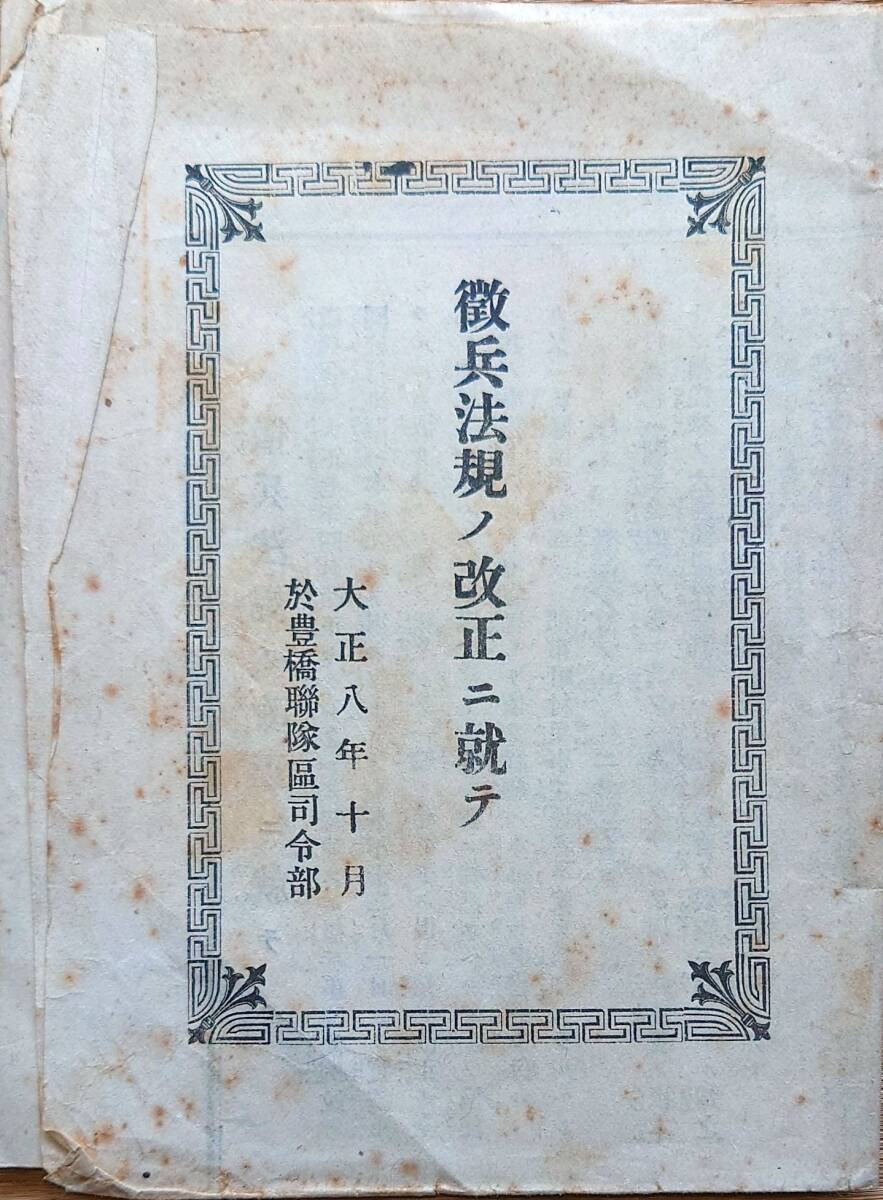 徵兵法規ノ改正ニ就テ
大正八年十月
於豊橋聯隊區司令部